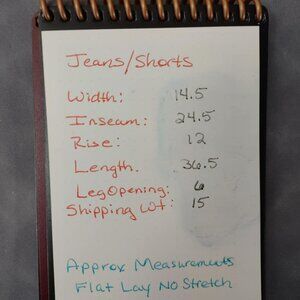 Jeans/Shorts
Width: 14.5
Inseam: 24.5
Rise: 12
Length. 36.5
Leg Opening: 6
Shipping Wt: 15
Approx Measurements
Flat Lay No Stretch